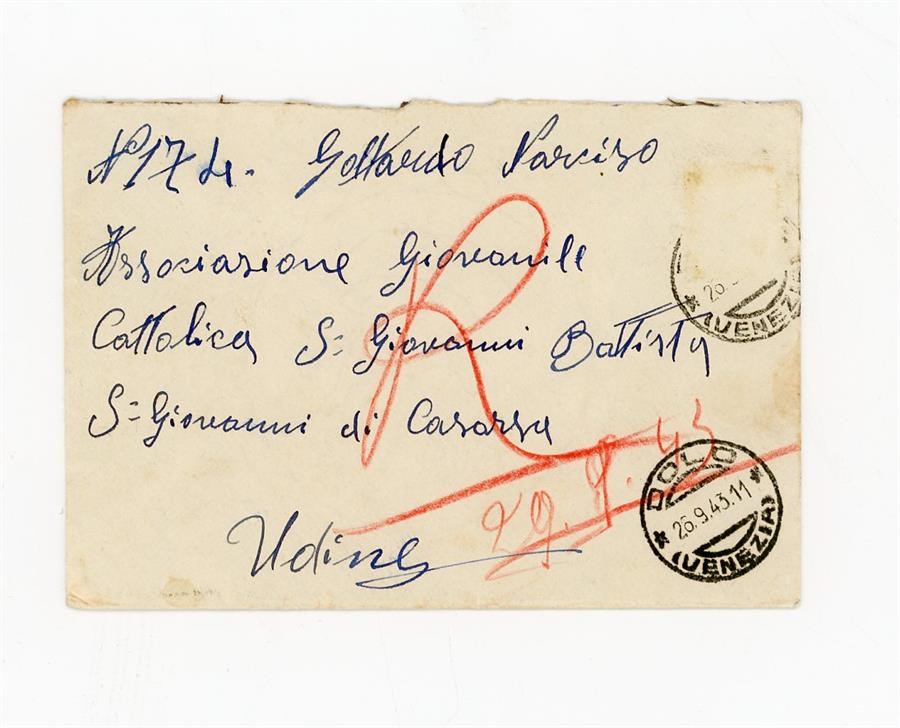 N° 174. Gottardo Narciso
Associazione Giovanile
Cattolica S= Giovanni Battista
S= Giovanni di Casarsa
Udine
R
29.9.43
26.
* (VENEZIA)
DOLO
* 26.9.43.11 *
(VENEZIA)